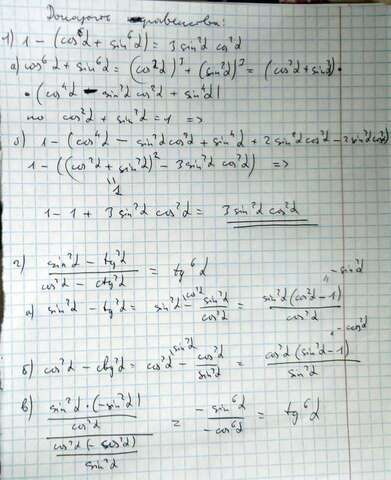 Доказать равенства:
1) 1 - (cos⁶α + sin⁶α) = 3 sin²α cos²α
а) cos⁶α + sin⁶α = (cos²α)³ + (sin²α)³ = (cos²α + sin²α) •
• (cos⁴α - sin²α cos²α + sin⁴α)
но cos²α + sin²α = 1 =>
б) 1 - (cos⁴α - sin²α cos²α + sin⁴α + 2 sin²α cos²α - 2 sin²α cos²α)
1 - ((cos²α + sin²α)² - 3 sin²α cos²α) =>
"
1
1 - 1 + 3 sin²α cos²α = 3 sin²α cos²α
2) (sin²α - tg²α) / (cos²α - ctg²α) = tg⁶α
- sin²α
"
а) sin²α - tg²α = sin²α^{cos²α} - sin²α / cos²α = sin²α (cos²α - 1) / cos²α
- cos²α
"
б) cos²α - ctg²α = cos²α^{sin²α} - cos²α / sin²α = cos²α (sin²α - 1) / sin²α
в) (sin²α · (-sin²α) / cos²α) / (cos²α (- cos²α) / sin²α) = - sin⁶α / - cos⁶α = tg⁶α